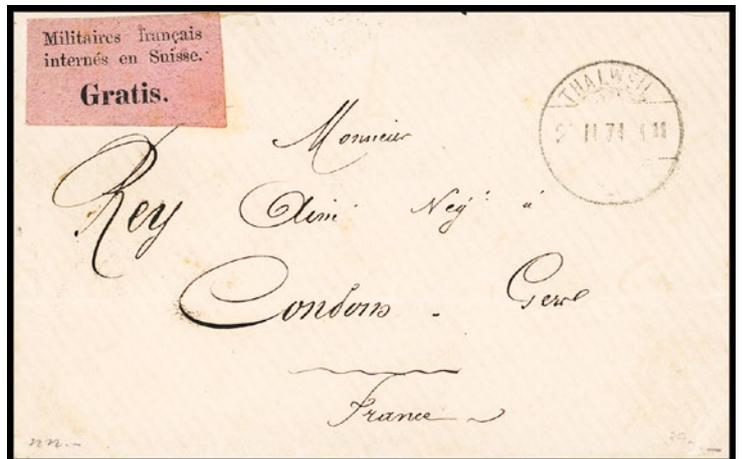 Militaires français
internés en Suisse.
Gratis.
THALWEIL
II 71
Monsieur
Rey Aimé Negt à
Condom. Gers
France